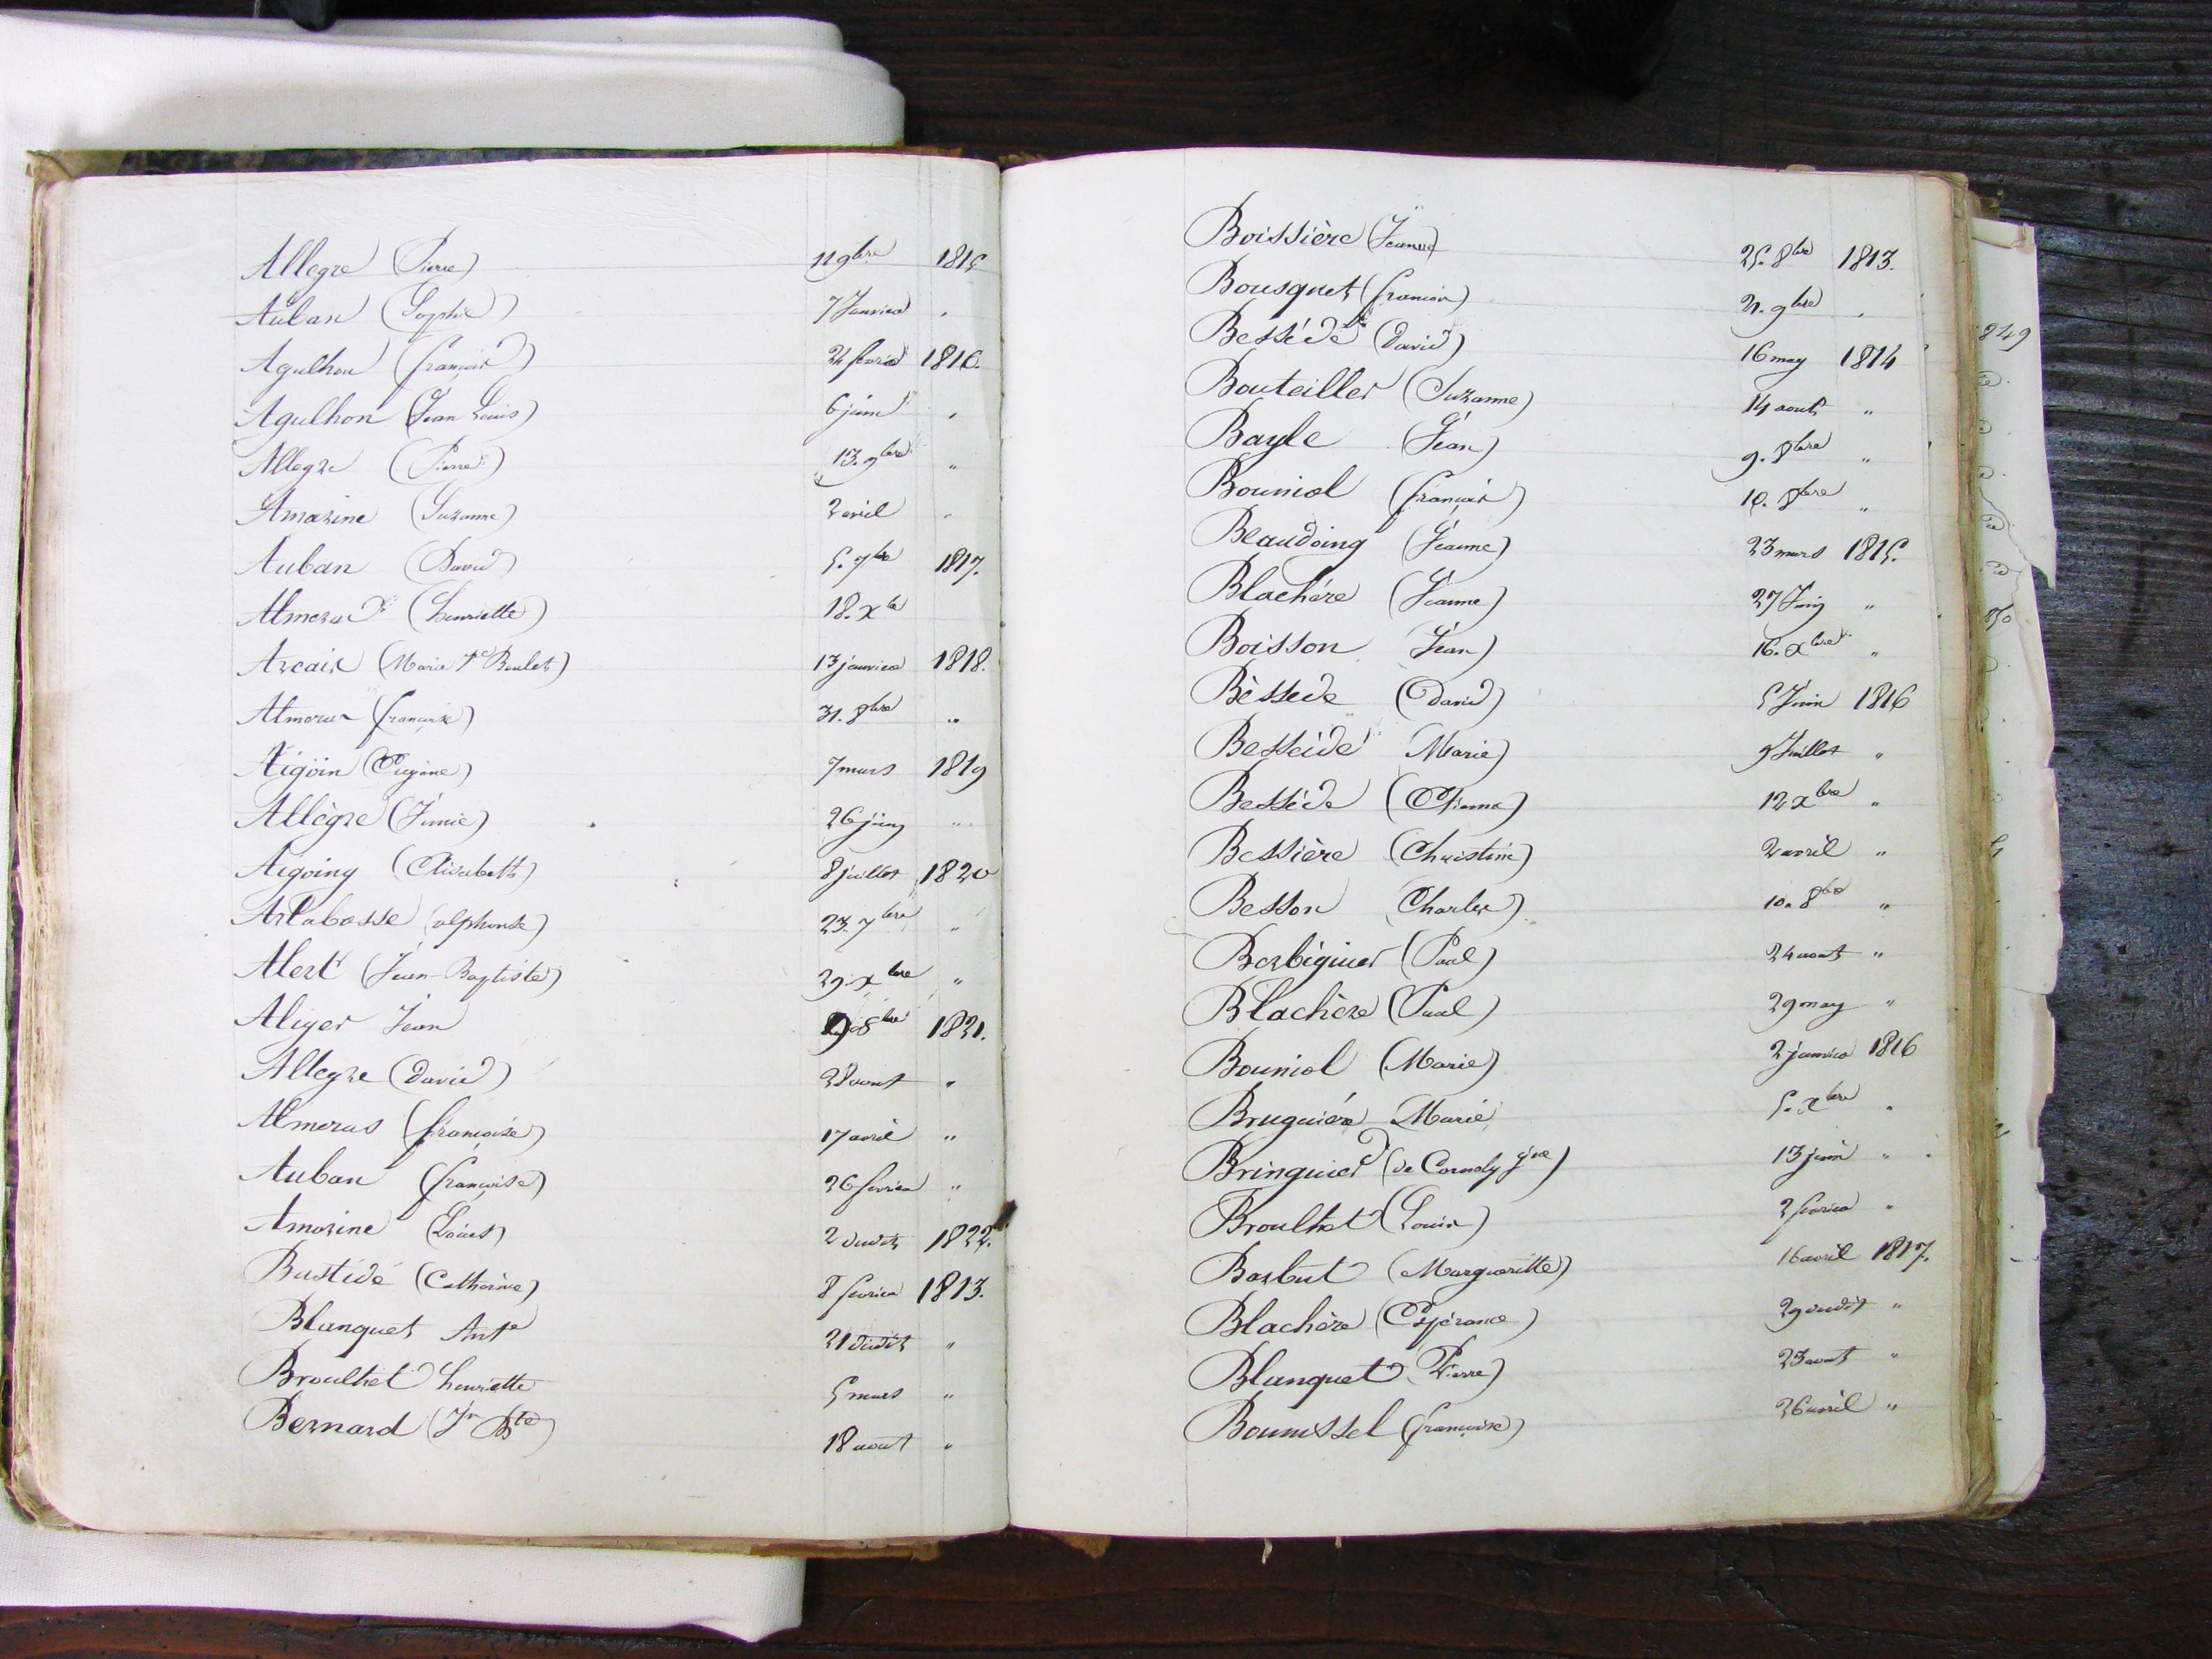 Allegre (Pierre) 11 9bre 1815
Auban (Sophie) 7 Janvier "
Agulhon (françois) 24 fevrier 1816.
Agulhon (Jean Louis) 6 juin "
Allegre (Pierre) 13. 9bre "
Amazine (Suzanne) 2 avril "
Auban (David) 5. 7bre 1817.
Almeras (henriette) 18. xbre
Arcaix (Marie Boulet) 13 janvier 1818.
Almeras (françoise) 31. 8bre "
Aigöin (Eugène) 7 mars 1819
Allègre (Fanie) 26 juin "
Aigoing (Elisabeth) 8 juillet 1820
Arlabosse (alphonse) 23. 7bre "
Alert (Jean-Baptiste) 29. xbre "
Aliger Jean 9 8bre 1821.
Allegre (David) 28 aout "
Almeras (françoise) 17 avril "
Auban (françoise) 26 fevrier "
Amazine (Louis) 2 dudit 1822.
Bastide (Catherine) 8 fevrier 1813.
Blanquet Ante 21 dudit "
Broulhet henriette 5 mars "
Bernard (Jn Bte) 18 aout "
Boissière (Jeanne) 25. 8bre 1813.
Bousquet (francois) 21. 9bre "
Bessède (David) 16 may 1814
Bouteiller (Suzanne) 14 aout "
Bayle (Jean) 9. 8bre "
Bouniol (françois) 10. 8bre "
Beaudoing (Jeanne) 23 mars 1815.
Blachére (Jeanne) 27 Juin "
Boisson (Jean) 16. xbre "
Bèssede (David) 5 Juin 1816
Besséde Marie) 9 Juillet "
Besséde (Etienne) 12 xbre "
Bessière (Christine) 2 avril "
Besson (Charles) 10. 8bre "
Berbiguier (Paul) 24 aout "
Blachère (Paul) 29 may "
Bouniol (Marie) 2 janvier 1816
Bruguiére Marie 5. xbre "
Bringuier (de Cornely) 13 juin "
Broulhet (Louis) 2 fevrier "
Barbut (Margueritte) 16 avril 1817.
Blachère (Espérance) 29 dudit "
Blanquet (Pierre) 23 aout "
Bounissel (françoise) 26 avril "
849